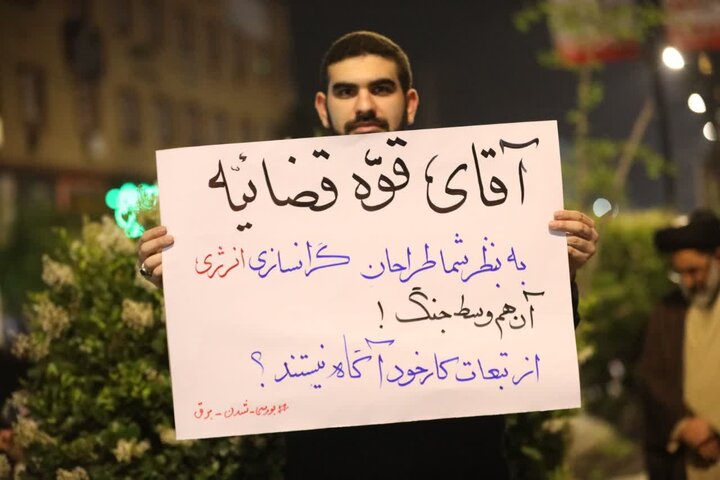 آقای قوّه قضائیّه
به نظر شما طراحان گرانسازی انرژی
آن هم وسط جنگ !
از تبعات کار خود آگاه نیستند ؟
#بورسی_شدن_برق